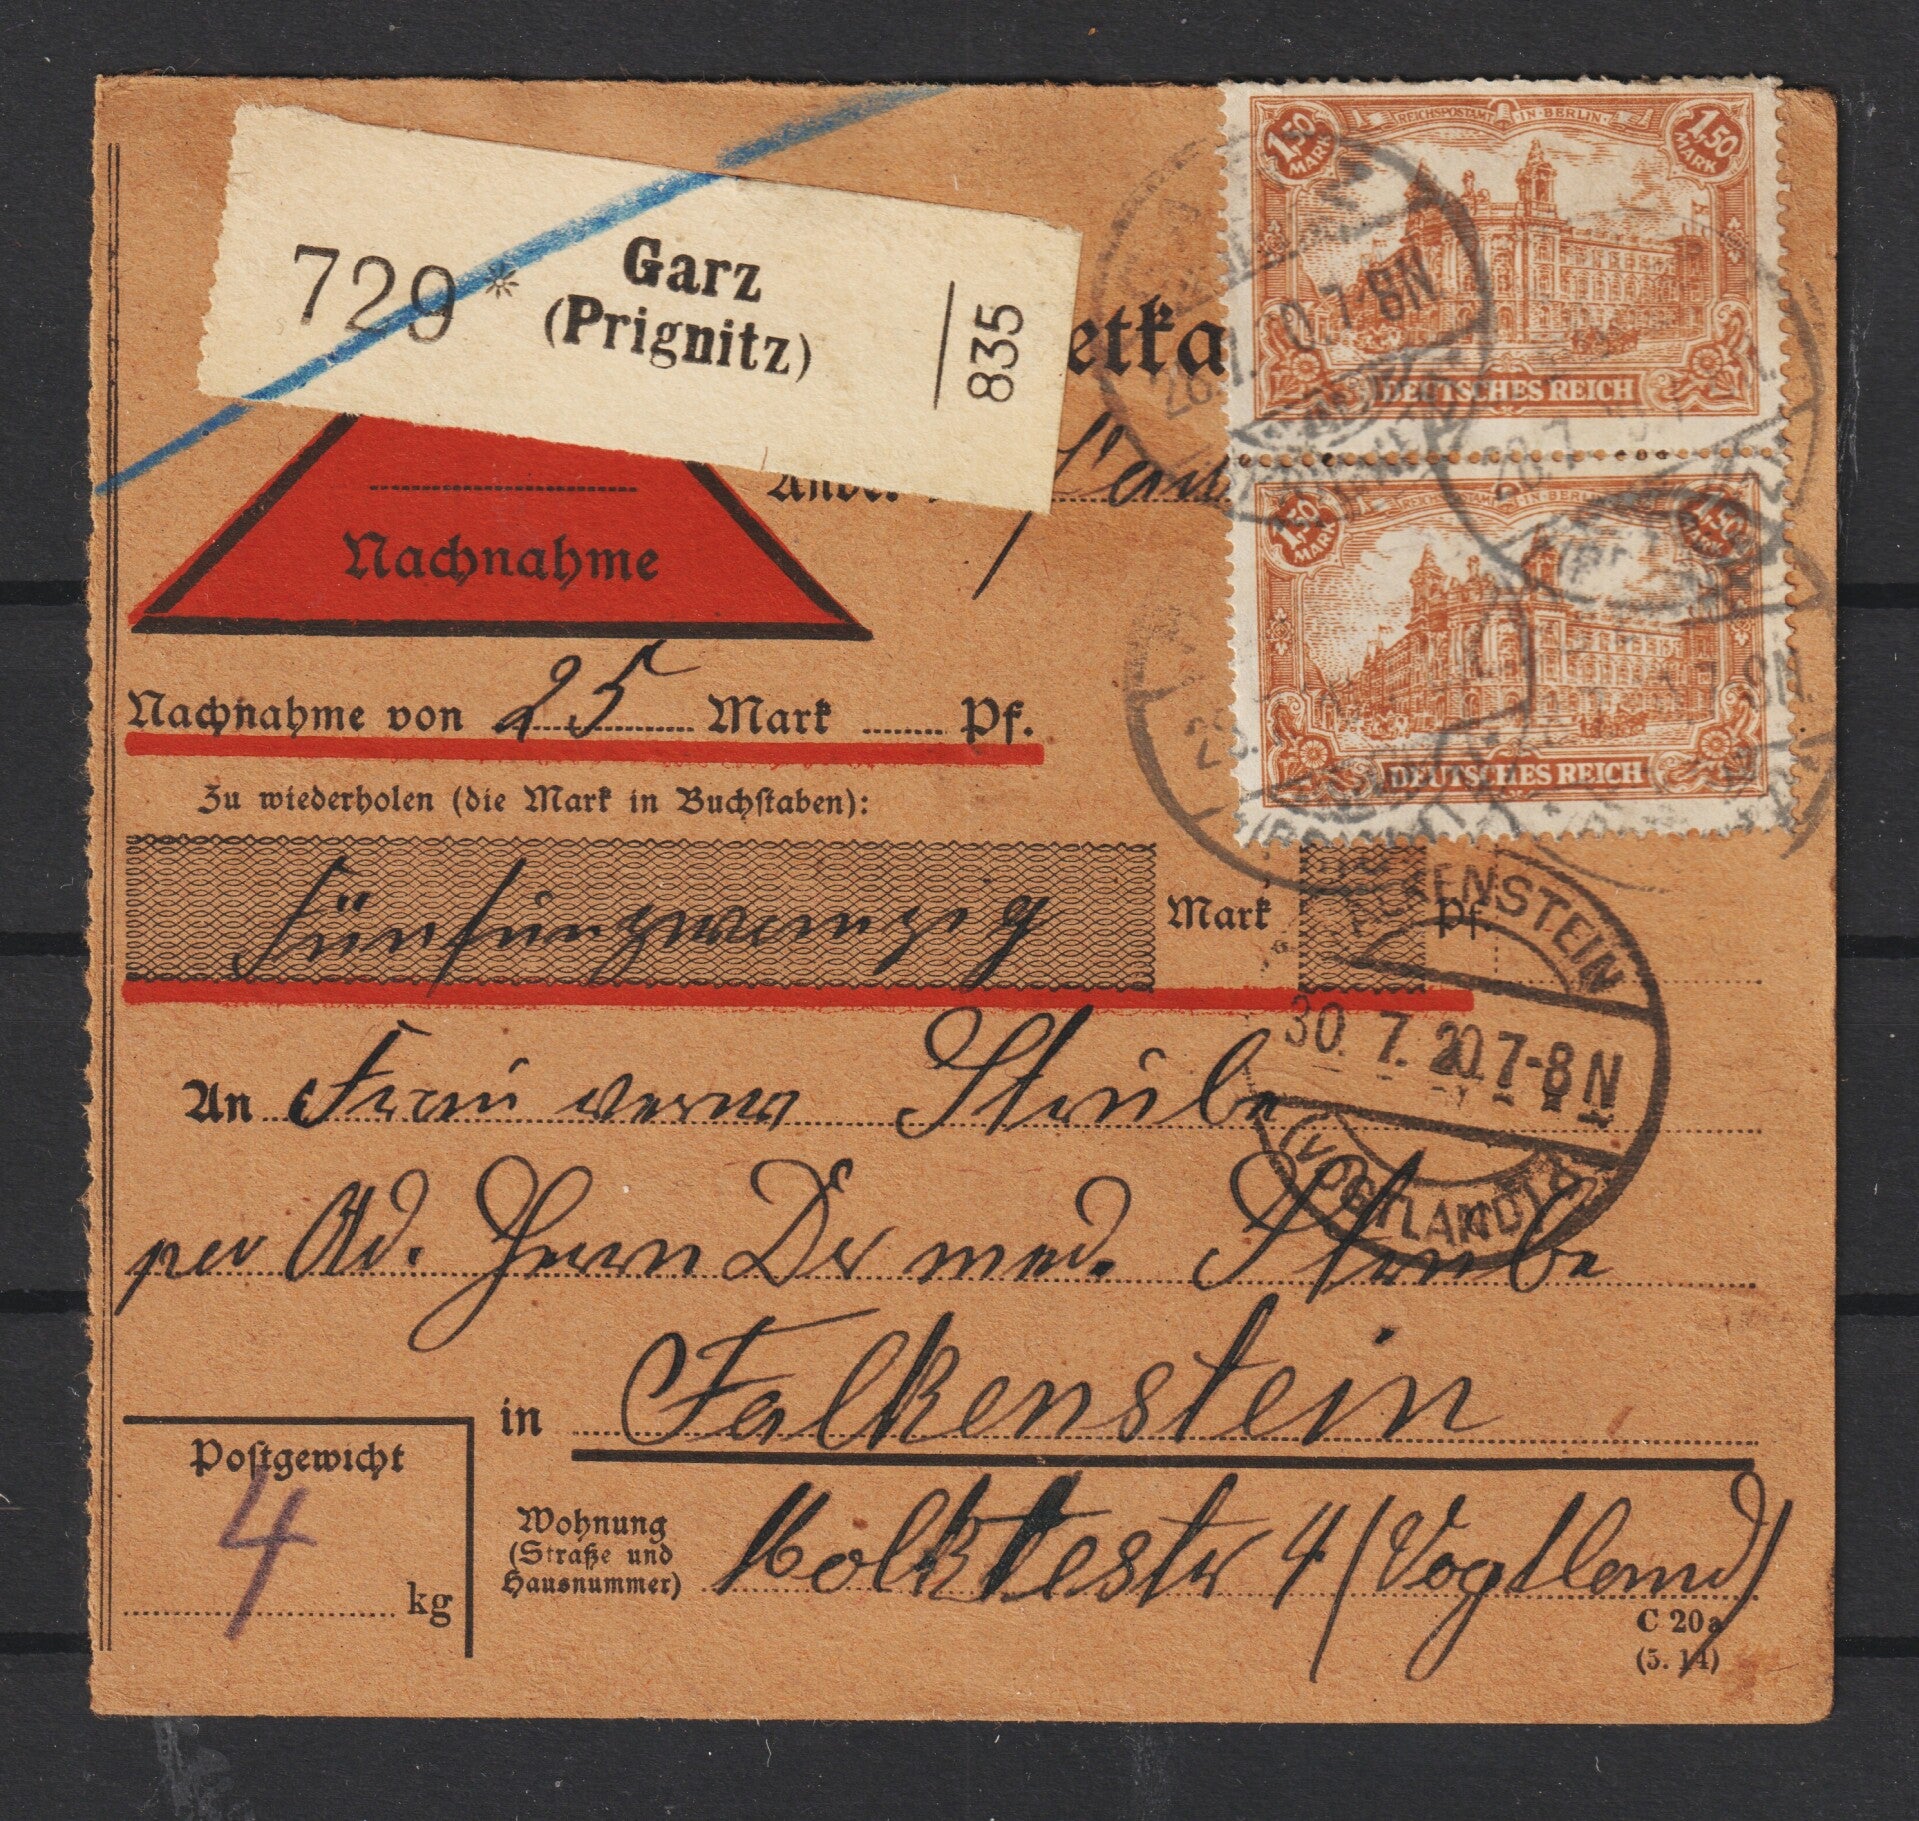 729 * Garz
(Prignitz)
835
etka
Nachnahme
1,50 MARK REICHSPOSTAMT IN BERLIN 1,50 MARK
DEUTSCHES REICH
1,50 MARK REICHSPOSTAMT IN BERLIN 1,50 MARK
DEUTSCHES REICH
7-8N
Nachnahme von 25 Mark Pf.
Zu wiederholen (die Mark in Buchstaben):
fünfunzwanzig Mark Pf.
FALKENSTEIN
30. 7. 20. 7-8 N
(VOGTLAND)
An Frau verw Strube
per Ad. Herrn Dr med. Strube
in Falkenstein
Postgewicht
4 kg
Wohnung
(Straße und
Hausnummer) Molktestr 4 (Vogtland)
C 20a
(5. 14)